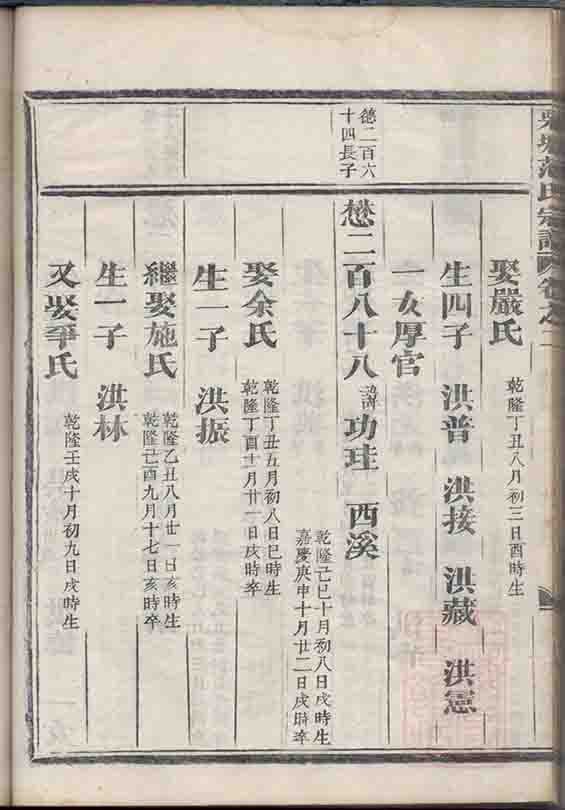 范氏宗譜 卷之二
娶嚴氏 乾隆丁丑八月初三日酉時生
生四子 洪普 洪接 洪藏 洪憲
一女厚官
德二百六十四長子
懋二百八十八 諱功珪 西溪
乾隆己巳十月初八日戌時生
嘉慶庚申十月廿二日戌時卒
娶余氏 乾隆丁丑五月初八日巳時生
乾隆丁酉十一月廿一日戌時卒
生一子 洪振
繼娶施氏 乾隆乙丑八月廿一日亥時生
乾隆己酉九月十七日亥時卒
生一子 洪林
又娶爭氏 乾隆壬戌十月初九日戌時生